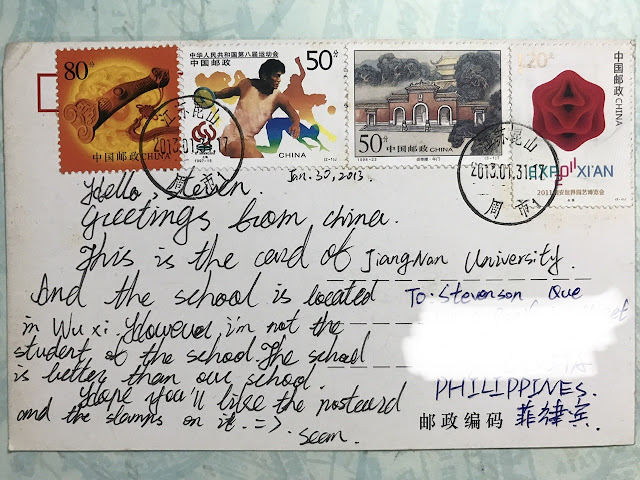 80分
中国邮政CHINA
中华人民共和国第八届运动会
中国邮政
50分
CHINA
1997-15
50分
中国邮政CHINA
1998-23
120分
中国邮政CHINA
EXPO XI'AN
2011西安世界园艺博览会
江苏昆山
2013.01.31.17
周市1
江苏昆山
2013.01.31.17
周市1
Jan.30,2013.
Hello, Steven.
Greetings from China.
This is the card of JiangNan University.
And the school is located
in Wuxi. However, i'm not the
student of the school. The school
is better than our school.
Hope you'll like the postcard
and the stamps on it. =)
Seem.
To: Stevenson Que
PHILIPPINES.
邮政编码 菲律宾